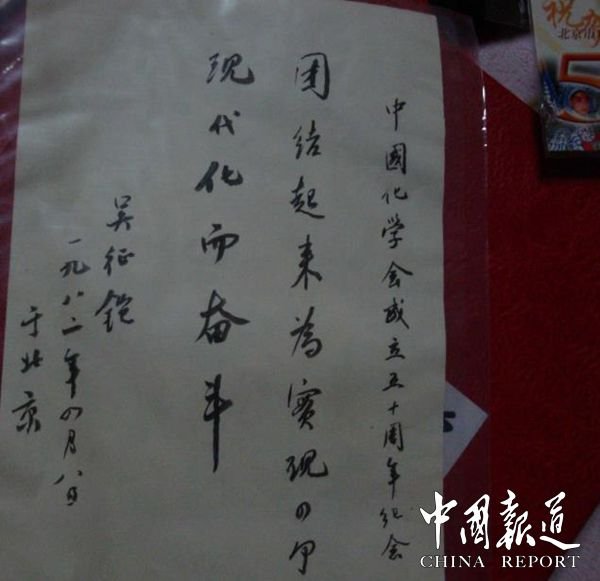 中國化学会成立五十周年纪念
团结起来為實现四个
现代化而奋斗
吴征铠
一九八二年四月八日
于北京
祝
北京市
5
中國報道
CHINA REPORT